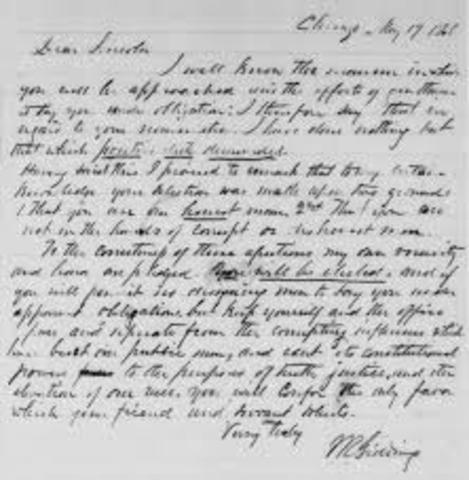 Chicago, May 19 1860
Dear Lincoln
I well know the manner in which
you will be approached and the efforts of gentlemen
to lay you under obligations: I therefore say that in
regard to your nomination I have done nothing but
that which positive duty demanded.
Having said this I proceed to remark that to my certain
knowledge your selection was made upon two grounds
1 that you are an honest man, 2nd That you are
not in the hands of corrupt or dishonest men.
To the correctness of these my own veracity
and honor are pledged You will be elected, and if
you will permit no designing men to lay you under
apparent obligations, but keep yourself and the office
free and separate from the corrupting influences which
have beset our public men, and exert its constitutional
powers to the purposes of truth, justice, and the
elevation of our race, you will confer the only favor
which your friend and servant solicits.
Very truly
Giddings